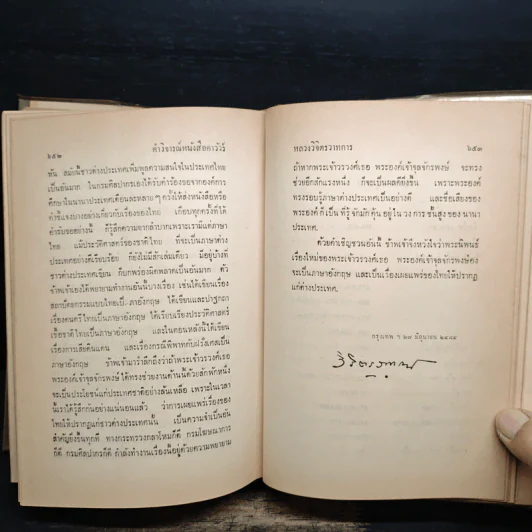 ๒๕๒ คำวิจารณ์หนังสือคาวีร์
ทัน สมัยนี้ชาวต่างประเทศเพิ่มพูนความสนใจในประเทศไทย
เป็นอันมาก ในกรมศิลปากรเองได้รับคำร้องขอจากองค์การ
ศึกษาในนานาประเทศเดือนละหลาย ๆ ครั้งให้ส่งหนังสือหรือ
คำชี้แจงบางอย่างเกี่ยวกับเรื่องของไทย เกือบทุกครั้งที่ได้
คำร้องขออย่างนี้ ก็รู้สึกความยากลำบากเพราะเรามีแต่ภาษา
ไทย แม้ประวัติศาสตร์ของชาติไทย ที่จะเป็นภาษาต่าง
ประเทศอย่างดีเรียบร้อย ก็ยังไม่มีสักเล่มเดียว มีอยู่บ้างที่
ชาวต่างประเทศเขียน ก็บกพร่องผิดพลาดเป็นอันมาก ตัว
ข้าพเจ้าเองได้พยายามทำงานอันนี้บางเรื่อง เช่นได้เขียนเรื่อง
สถาปัตยกรรมแบบไทยเป็นภาษาอังกฤษ ได้เขียนและปาฐกถา
เรื่องดนตรีไทยเป็นภาษาอังกฤษ ได้เขียนเรื่องประวัติศาสตร์
เชื้อชาติไทยเป็นภาษาอังกฤษ และในตอนหลังนี้ได้เขียน
เรื่องการเสียดินแดน และเรื่องกรณีพิพาทกับฝรั่งเศสเป็น
ภาษาอังกฤษ ข้าพเจ้ามารำลึกถึงว่าถ้าพระเจ้าวรวงศ์เธอ
พระองค์เจ้าจุลจักรพงษ์ ได้ทรงช่วยงานด้านนี้ด้วยสักพักหนึ่ง
จะเป็นประโยชน์แก่ประเทศชาติอย่างล้นเหลือ เพราะในเวลา
นี้เราได้รู้สึกกันอย่างแน่นอนแล้ว ว่าการเผยแพร่เรื่องของ
ไทยให้ปรากฏแก่ชาวต่างประเทศนั้น เป็นความจำเป็นอัน
สำคัญยิ่งขึ้นทุกที ทางกระทรวงกลาโหมก็ดี กรมโฆษณาการ
ก็ดี กรมศิลปากรก็ดี กำลังทำงานเรื่องนี้อยู่ด้วยความพยายาม
หลวงวิจิตรวาทการ ๒๕๓
ถ้าหากพระเจ้าวรวงศ์เธอ พระองค์เจ้าจุลจักรพงษ์ จะทรง
ช่วยอีกสักแรงหนึ่ง ก็จะเป็นผลดียิ่งขึ้น เพราะพระองค์
ทรงรอบรู้ภาษาต่างประเทศเป็นอย่างดี และชื่อเสียงของ
พระองค์ก็เป็นที่รู้จักมักคุ้นอยู่ในวงการชั้นสูงของนานา
ประเทศ.
ด้วยคำเชิญชวนอันนี้ ข้าพเจ้าจึงหวังใจว่าพระนิพนธ์
เรื่องใหม่ของพระเจ้าวรวงศ์เธอ พระองค์เจ้าจุลจักรพงษ์คง
จะเป็นภาษาอังกฤษ และเป็นเรื่องเผยแพร่ของไทยให้ปรากฏ
แก่ต่างประเทศ.
กรุงเทพ ฯ ๒๗ มิถุนายน ๒๔๘๔
วิจิตรวาทการ